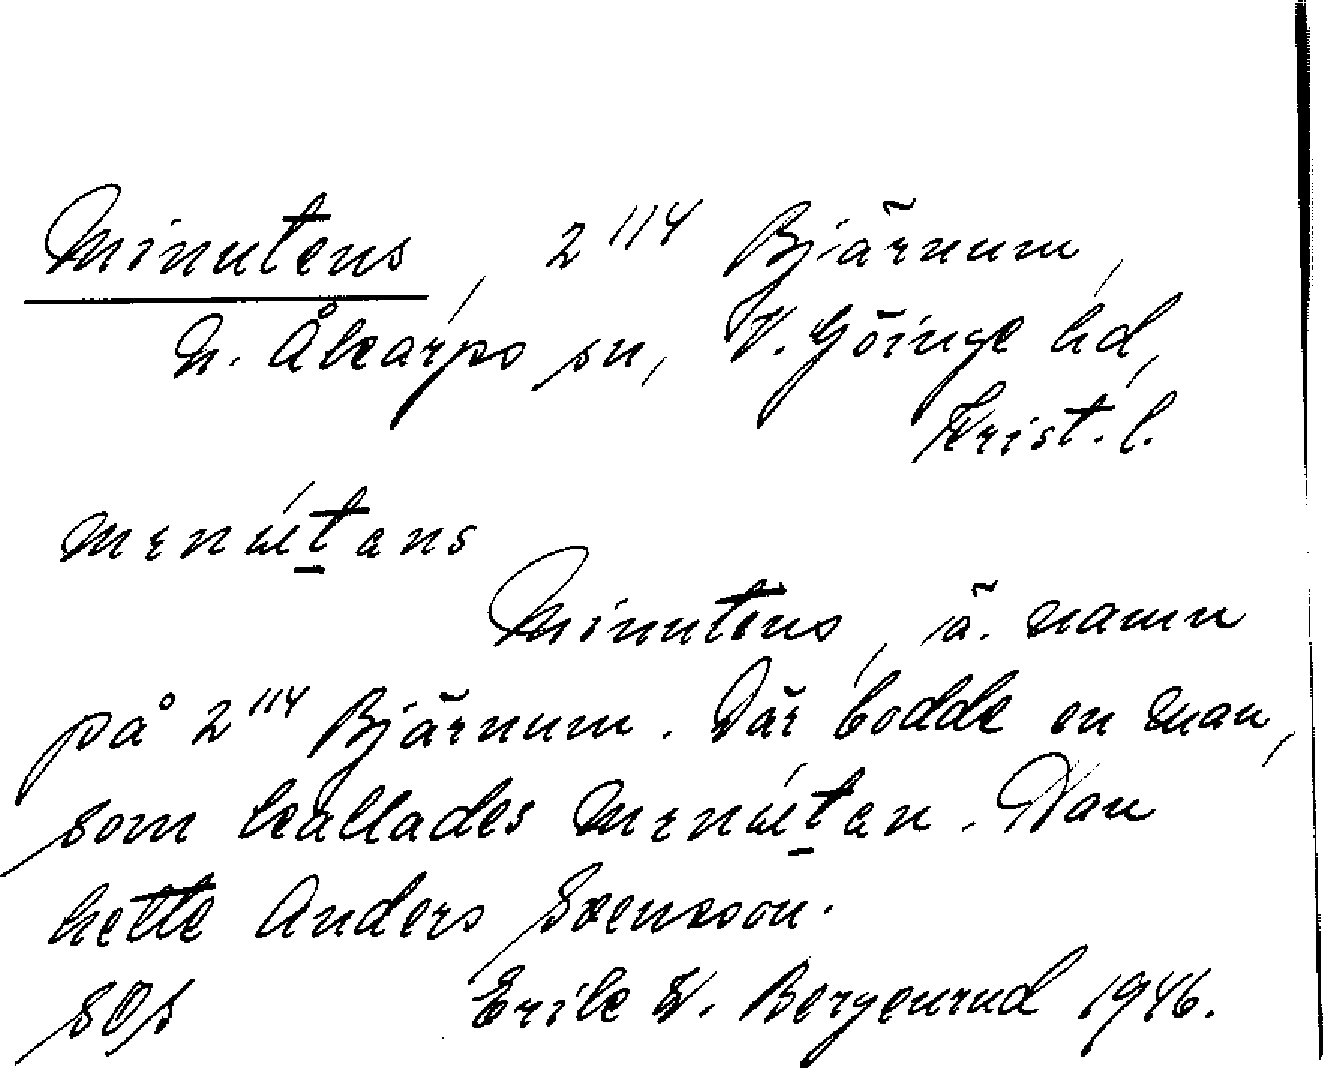 Minutens, 2¹¹⁴ Bjärnum,
N. Åkarps sn, V. Göinge hd,
Krist. l.
Minutens, ä. namn
på 2¹¹⁴ Bjärnum. Där bodde en man,
som kallades . Han
hette Anders Svensson.
Erik W. Bergenrud 1946.